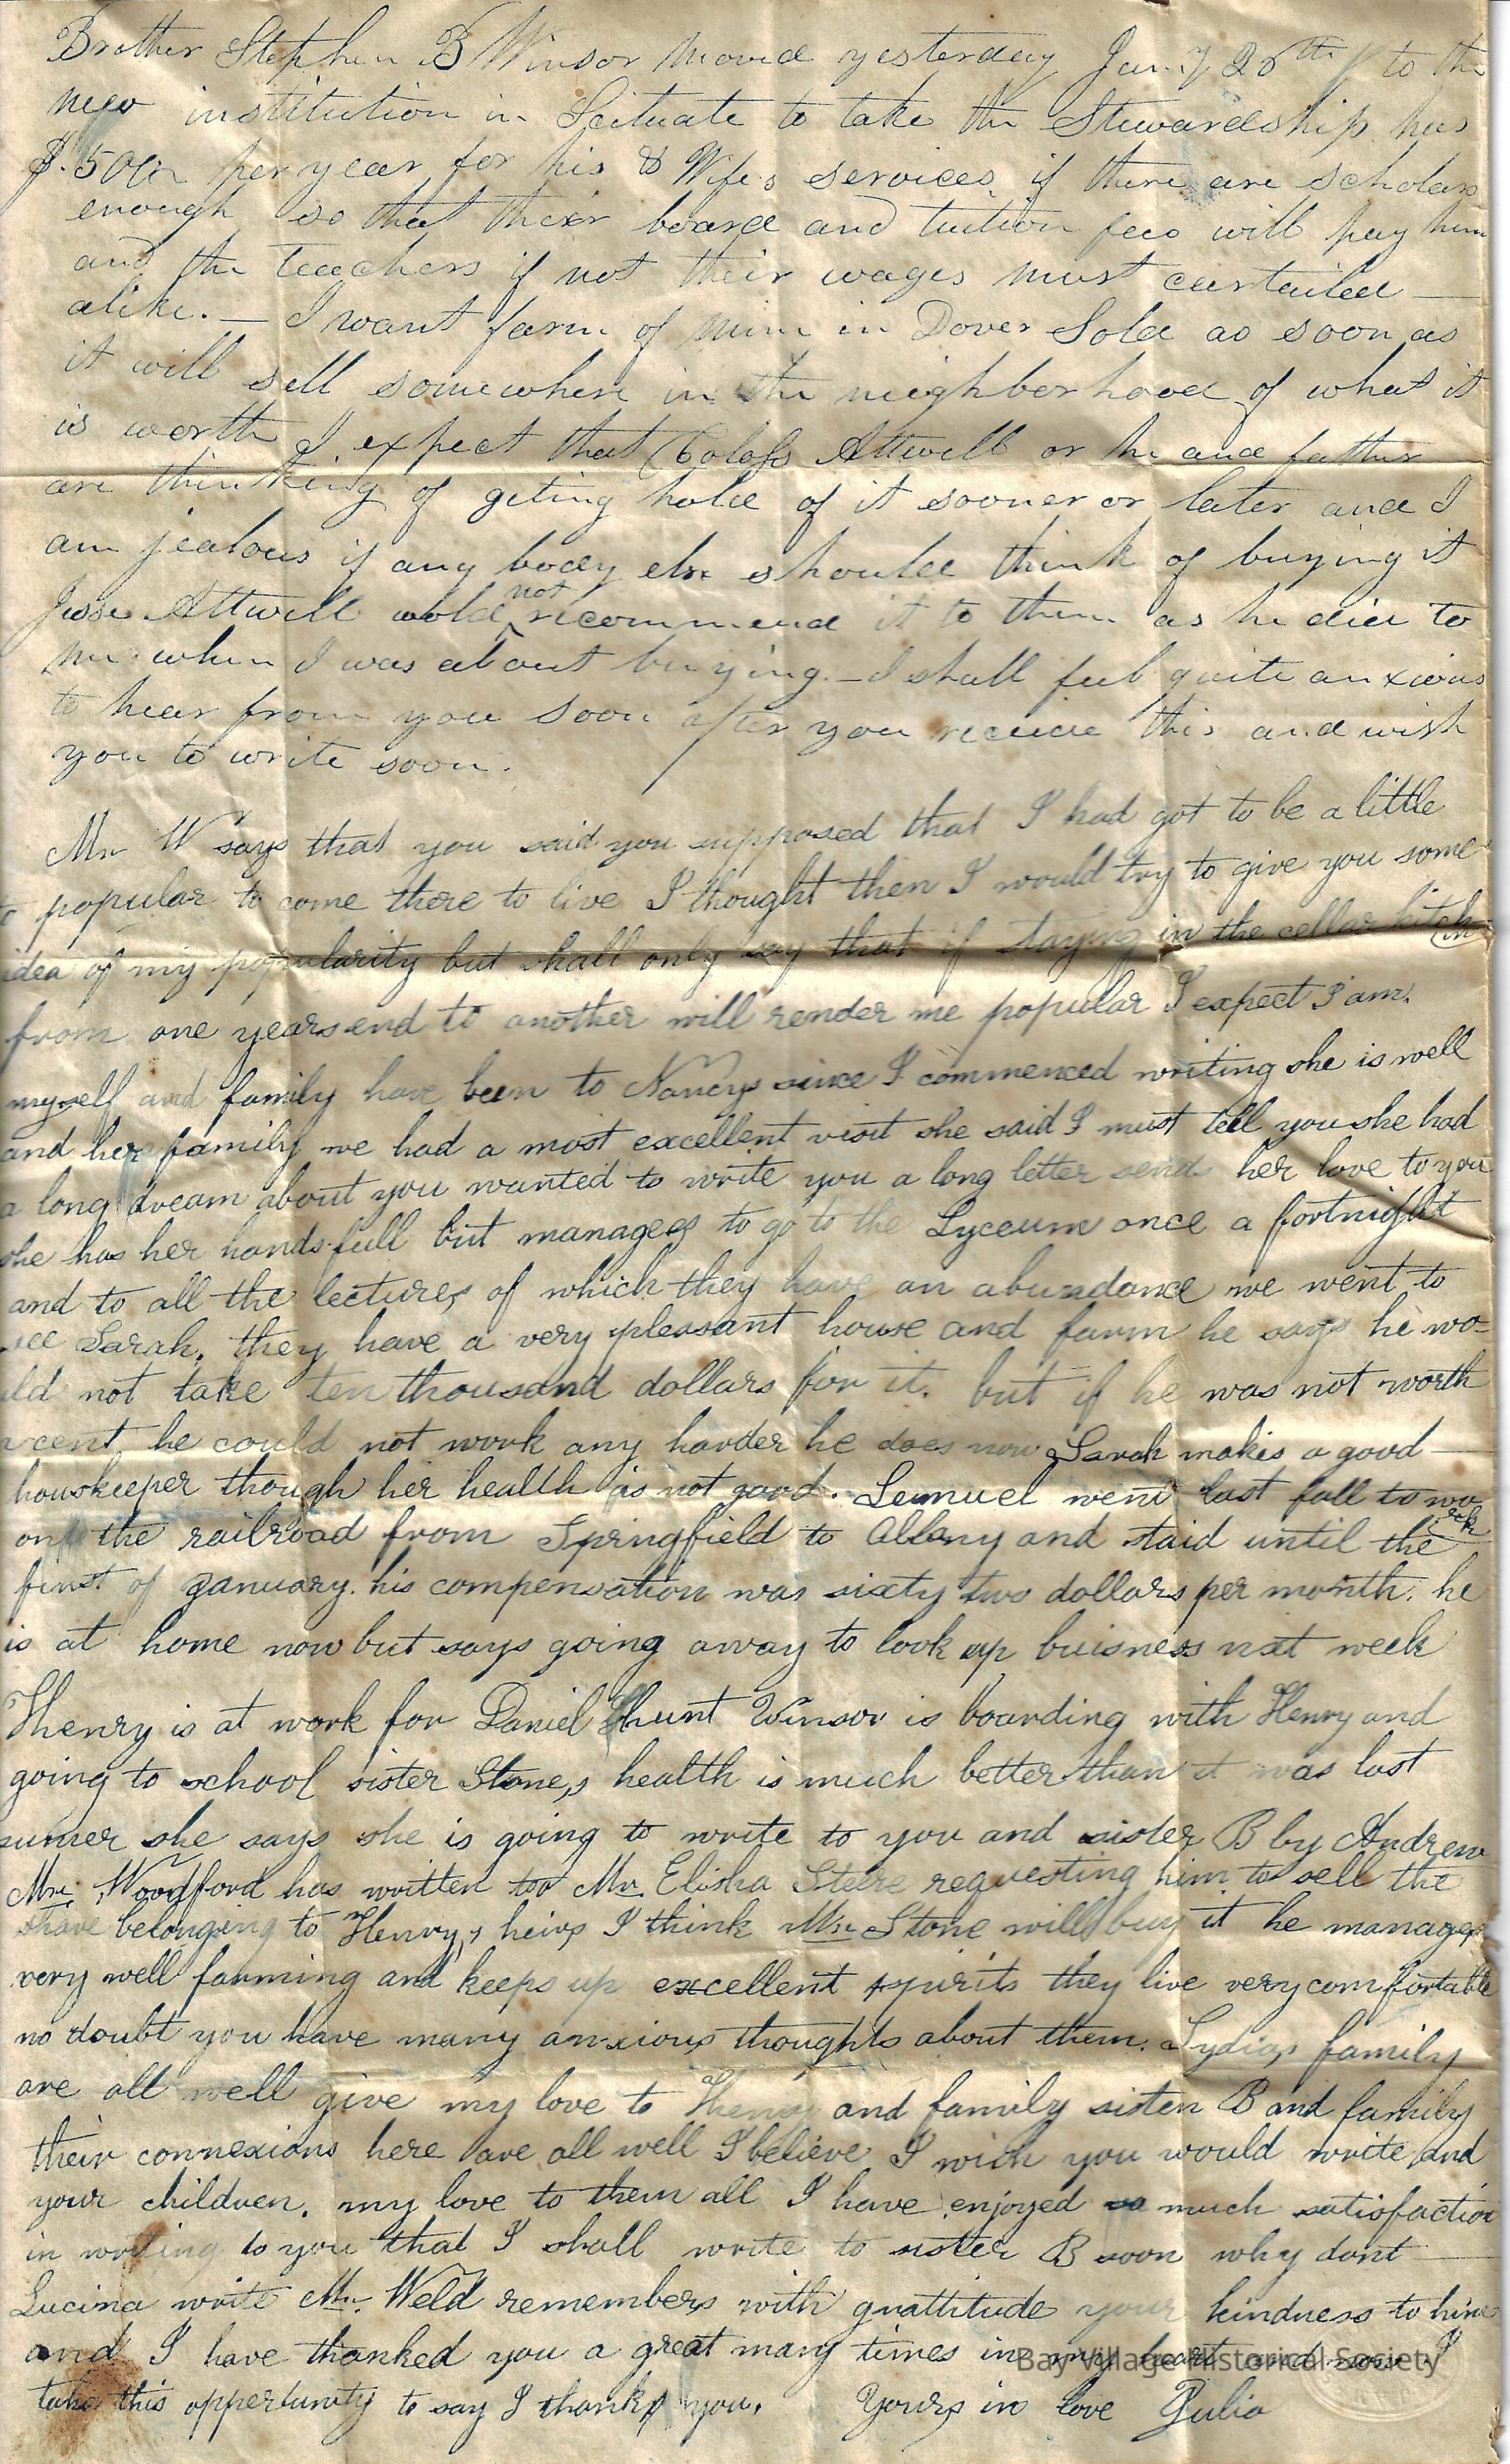 Brother Stephen B Winsor moved yesterday Jan.y 26th to the
new institution in Scituate to take the Stewardship has
$.500 per year for his & Wifes services if there are scholars
enough so that their board and tuition fees will pay him
and the teachers if not their wages must curtailed —
alike. — I want farm of mine in Dover Sold as soon as
it will sell somewhere in the neighborhood of what it
is worth I expect that Attwell or he and father
are thinking of geting hold of it sooner or later and I
am jealous if any body else should think of buying it
Jesse Attwell wold not recommend it to them as he did to
me when I was about buying. — I shall feel quite anxious
to hear from you soon after you receive this and wish
you to write soon.
Mr W says that you said you supposed that I had got to be a little
to popular to come there to live I thought then I would try to give you some
idea of my popularity but shall only say that if staying in the cellar kitchn
from one years end to another will render me popular I expect I am.
myself and family have been to Nancys since I commenced writing she is well
and her family we had a most excellent visit she said I must tell you she had
a long dream about you wanted to write you a long letter sends her love to you
she has her hands full but manages to go to the Lyceum once a fortnight
and to all the lectures of which they have an abundance we went to
see Sarah, they have a very pleasant house and farm he says he wo-
uld not take ten thousand dollars for it. but if he was not worth
a cent, he could not work any harder he does now Sarah makes a good —
houskeeper though her health is not good. Lemuel went last fall to work
on the railroad from Springfield to Albany and staid until the
first of January. his compensation was sixty two dollars per month. he
is at home now but says going away to look up buisness next week
Thenry is at work for Daniel Hunt Winsor is boarding with Henry and
going to school sister Stone,s health is much better than it was last
sumer she says she is going to write to you and sister B by Andrew
Mr. Woodford has written too Mr Elisha Steere requesting him to sell the
share belonging to Henry,s heirs I think Mr Stone will buy it he manages
very well farming and keeps up excellent spirits they live very comfortable
no doubt you have many anxious thoughts about them. Lydias family
are all well give my love to and family sister B and family
their connexions here are all well I believe I wish you would write and
your children. my love to them all I have enjoyed so much satisfaction
in writing to you that I shall write to sister B soon why dont —
Lucina write Mr. Weld remembers with grattitude your kindness to him
and I have thanked you a great many times in my heart and now I
take this oppertunity to say I thank you. Yours in love Julia
Bay Village Historical Society